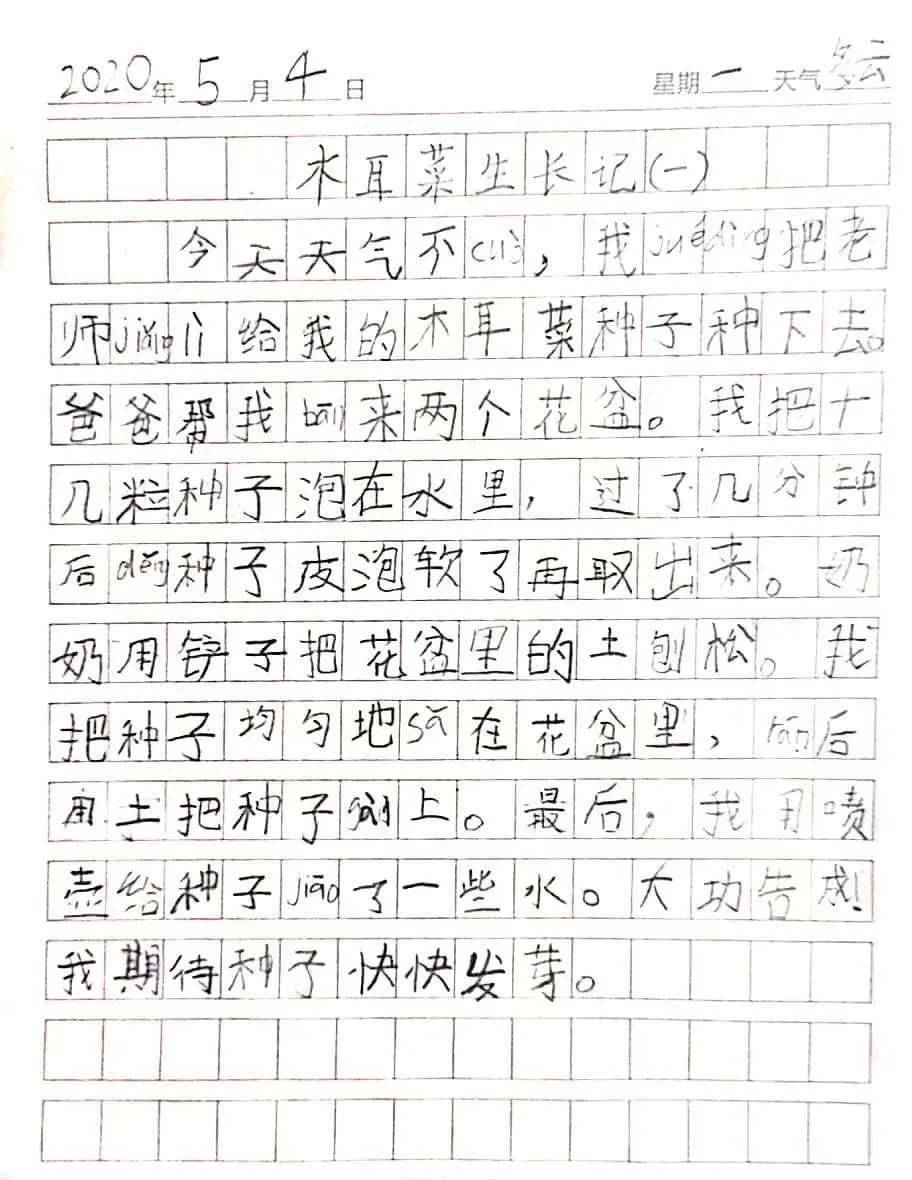 2020年5月4日 星期一 天气多云
木耳菜生长记(一)
今天天气不cuò,我juédìng把老
师jiǎnglì给我的木耳菜种子种下去。
爸爸帮我bān来两个花盆。我把十
几粒种子泡在水里,过了几分钟
后děng种子皮泡软了再取出来。奶
奶用铲子把花盆里的土刨松。我
把种子均匀地sǎ在花盆里,rán后
用土把种子gài上。最后,我用喷
壶给种子jiāo了一些水。大功告成!
我期待种子快快发芽。